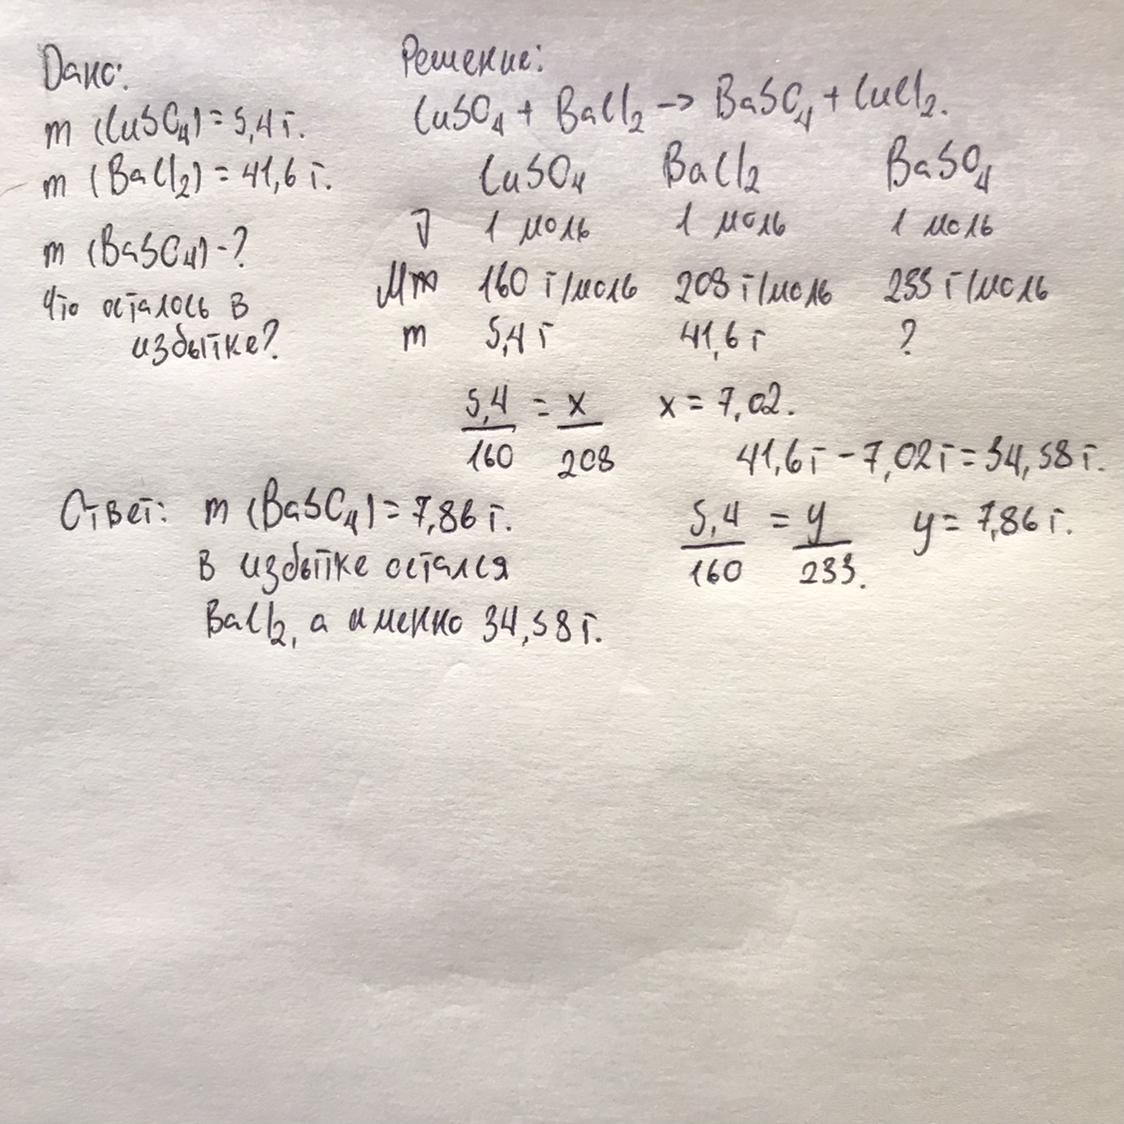 Дано:
m (CuSO₄) = 5,4 г.
m (BaCl₂) = 41,6 г.
m (BaSO₄) - ?
Что осталось в
избытке?
Решение:
CuSO₄ + BaCl₂ → BaSO₄ + CuCl₂.
CuSO₄ BaCl₂ BaSO₄
ν 1 моль 1 моль 1 моль
M 160 г/моль 208 г/моль 233 г/моль
m 5,4 г 41,6 г ?
5,4/160 = x/208 x = 7,02.
41,6 г - 7,02 г = 34,58 г.
5,4/160 = y/233. y = 7,86 г.
Ответ: m (BaSO₄) = 7,86 г.
В избытке остался
BaCl₂, а именно 34,58 г.